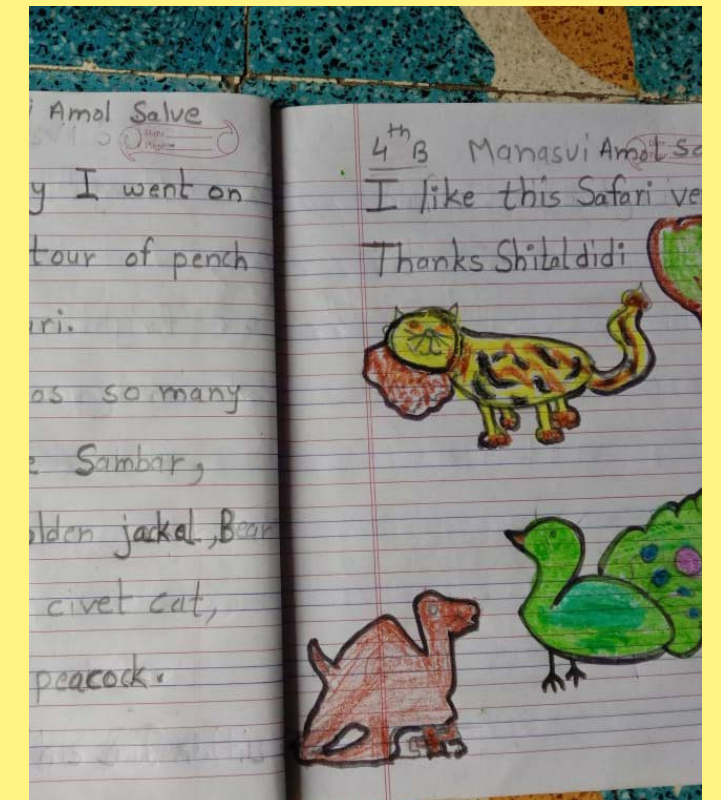 Amol Salve
y I went on
tour of pench
ari.
as so many
e Sambar,
olden jackal, Bear
civet cat,
peacock.
4th B Manasvi Amol Sa
I like this Safari ve
Thanks Shital didi